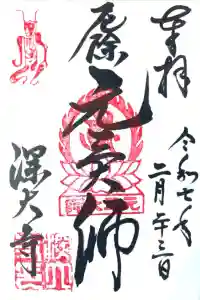 奉拝
令和七年
二月二十三日
厄除
元三大師
深大寺